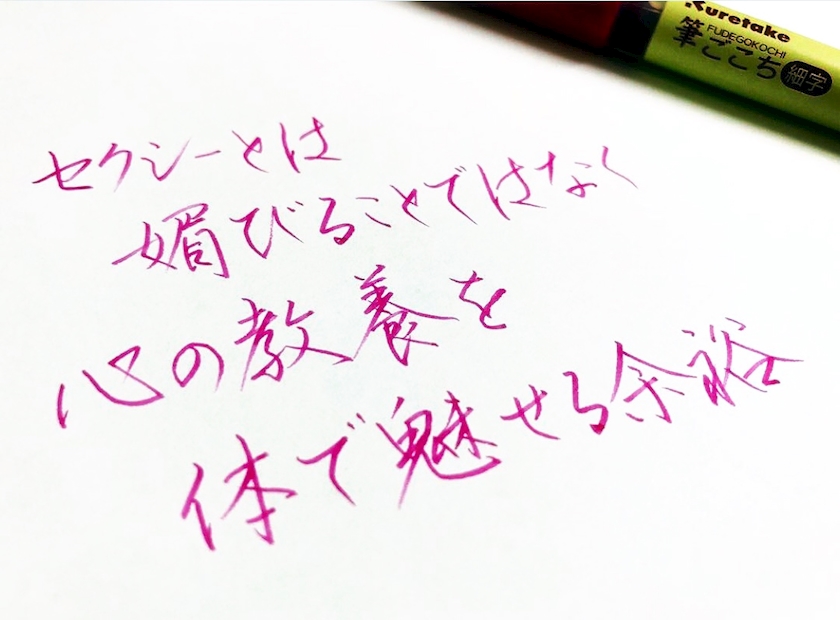 Kuretake
FUDEGOKOCHI
筆ごこち 細字
セクシーとは
媚びることではなく
心の教養を
体で魅せる余裕